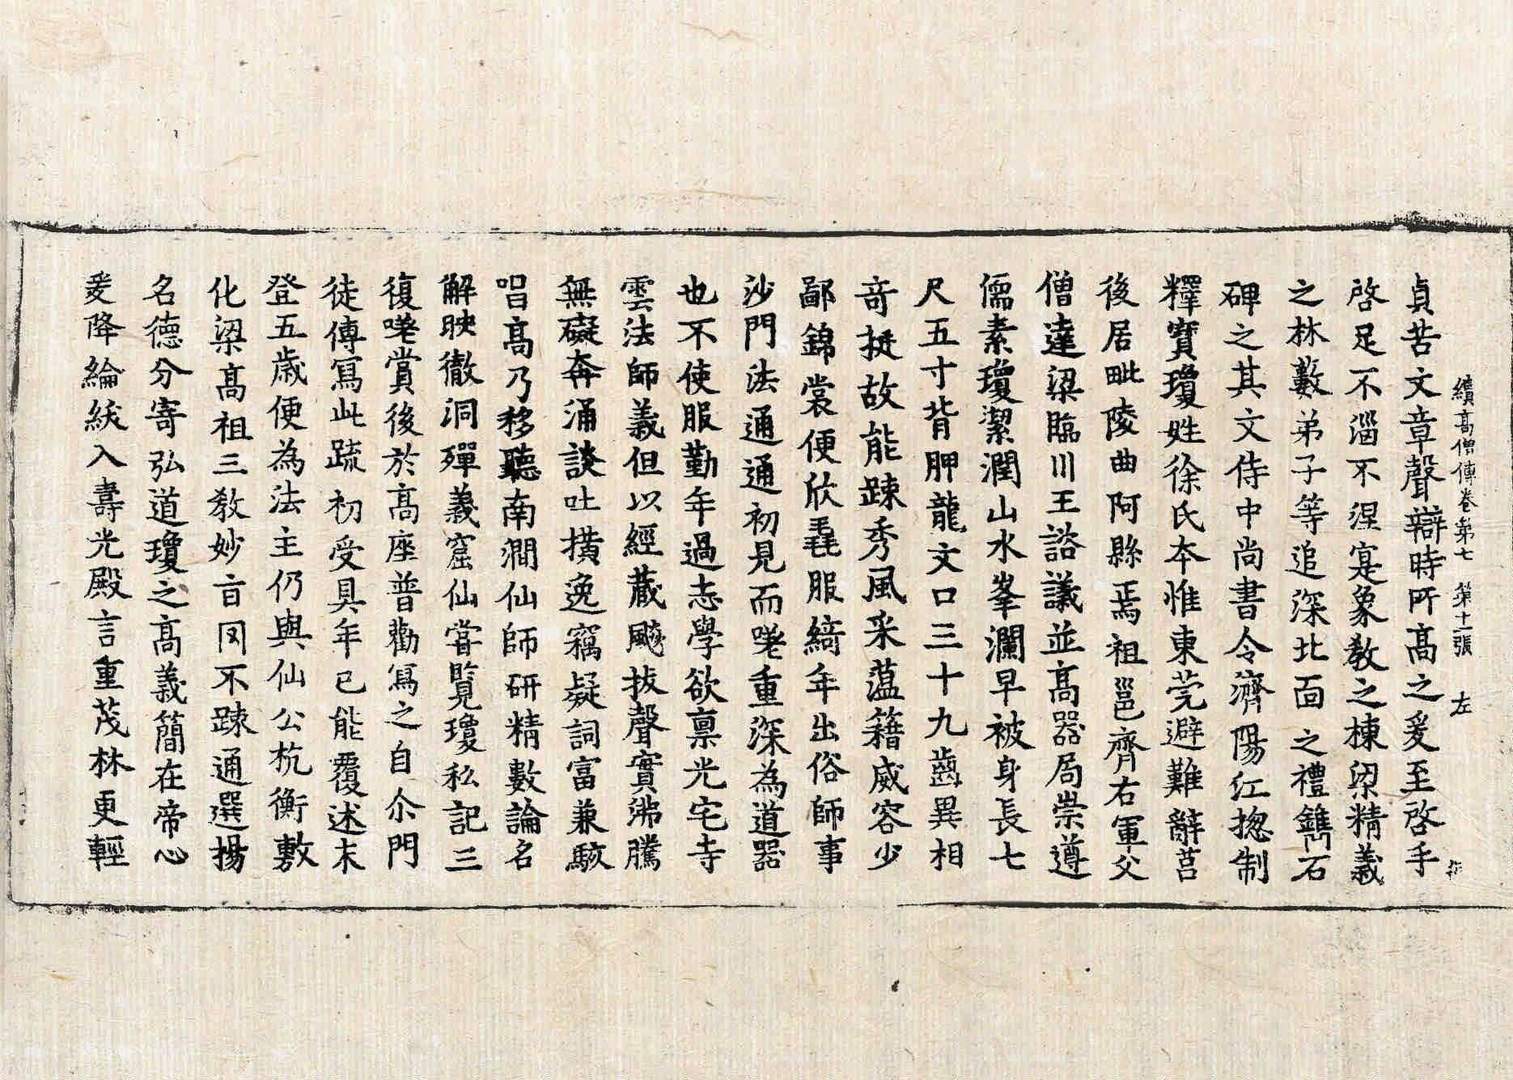 續高僧傳卷第七 第十一張 左
貞苦文章聲辯時所高之爰至啓手
啓足不淄不涅寔象教之棟梁精義
之林藪弟子等追深北面之禮鐫石
碑之其文侍中尚書令濟陽江揔制
釋寶瓊姓徐氏本惟東莞避難辭莒
後居毗陵曲阿縣焉祖邕齊右軍父
僧達梁臨川王諮議並高器局崇遵
儒素瓊潔潤山水峯瀾早被身長七
尺五寸背胛龍文口三十九齒異相
奇挺故能踈秀風采薀籍威容少
鄙錦裳便欣毳服綺年出俗師事
沙門法通通初見而嗟重深為道器
也不使服勤年過志學欲稟光宅寺
雲法師義但以經蔵飈拔聲實沸騰
無礙奔涌談吐撗逸竊疑詞富兼駭
唱高乃移聽南澗仙師研精數論名
解映徹洞殫義窟仙嘗覽瓊私記三
復嗟賞後於高座普勸寫之自尒門
徒傳寫此䟽初受具年已能覆述未
登五歲便為法主仍與仙公抗衡敷
化梁高祖三教妙盲罔不踈通選揚
名德分寄弘道瓊之高義簡在帝心
爰降綸紱入壽光殿言重茂林更輕